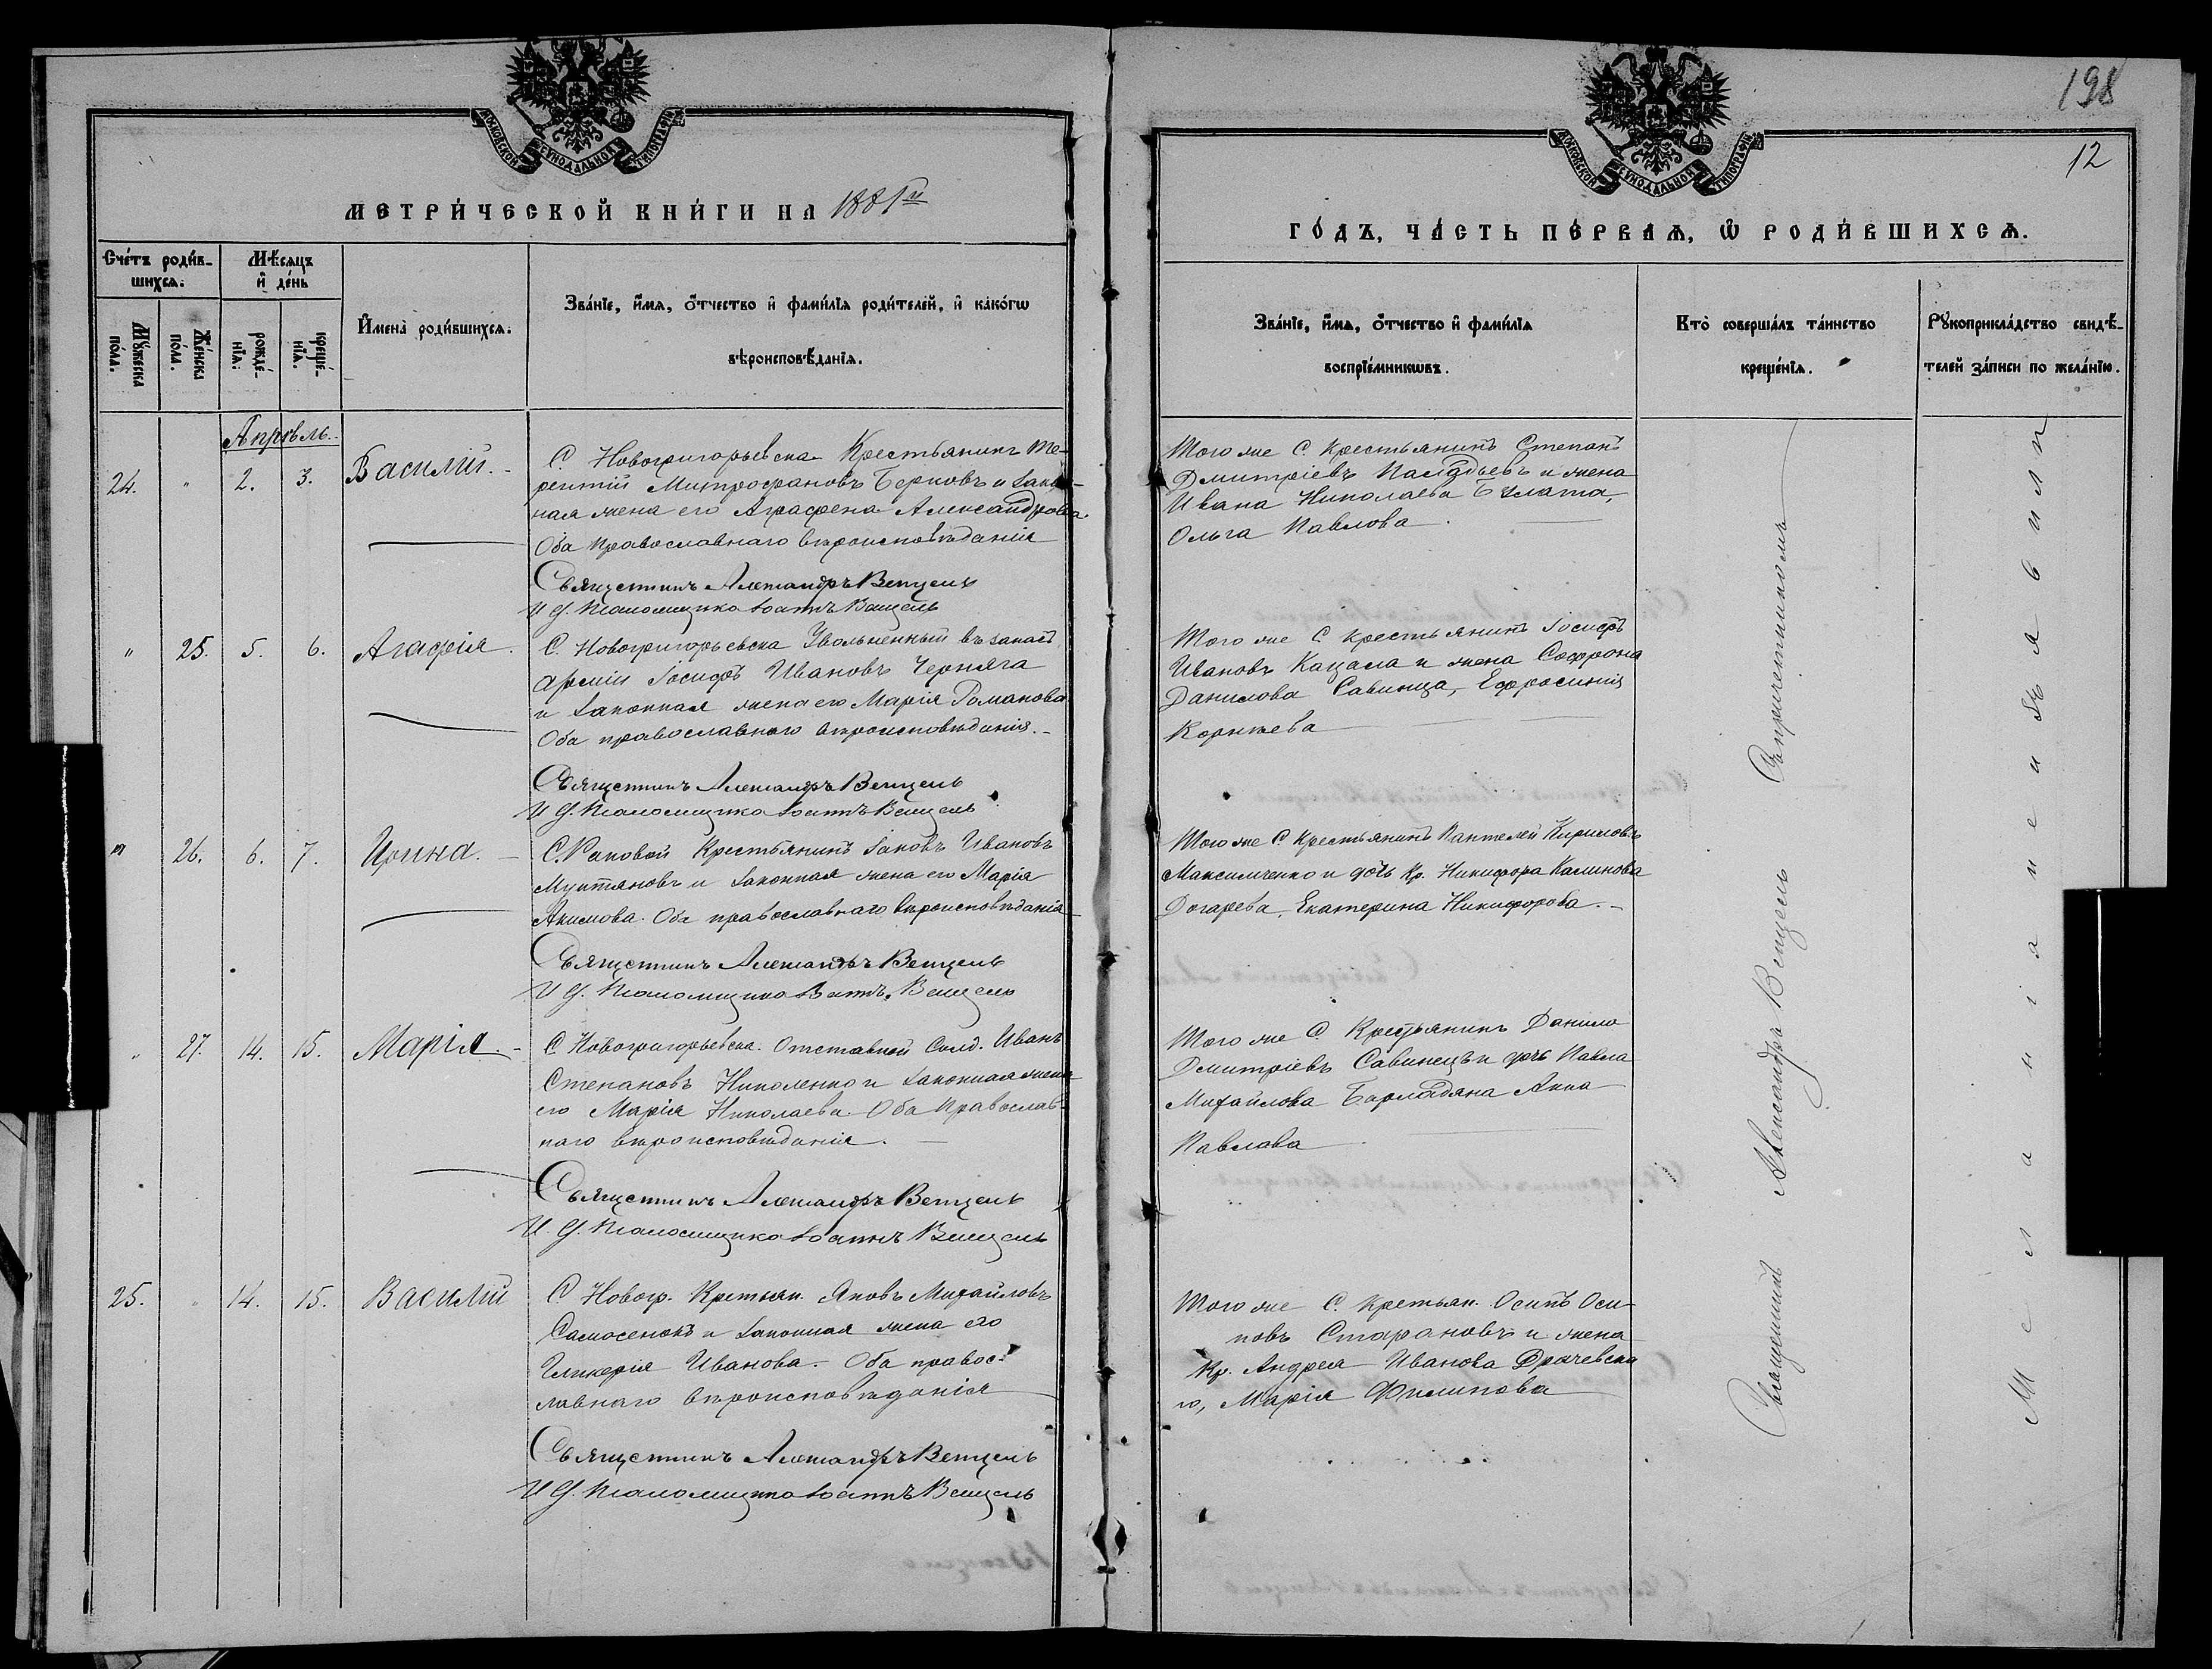 МОСКОВСКОЙ СѴНОДАЛЬНОЙ ТИПОГРАФІИ
МЕТРИ́ЧЕСКОЙ КНИ́ГИ НА 1881й
Сче́тъ роди́в-
шихсѧ.
Мѣ́сѧцъ
и҆ де́нь
Мꙋ́жеска
по́ла.
Же́нска
по́ла.
рожде́-
нїѧ.
креще́-
нїѧ.
И҆мена̀ роди́вшихсѧ.
Зва́нїе, и҆́мѧ, ѻ҆́тчество и҆ фами́лїѧ роди́телей, и҆ како́гѡ
вѣроисповѣ́данїѧ.
Апрѣль.
24. " 2. 3. Василій. -
С. Новогригорьевска Крестьянинъ Те-
рентій Митрофановъ Берковъ и закон-
ная жена его Аграфена Александрова.
Оба православнаго вѣроисповѣданія
Священникъ Александръ Венцель
И. д. Псаломщика Іоаннъ Венцель
" 25. 5. 6. Агафія.
С. Новогригорьевска Увольненный въ запасъ
арміи Іосифъ Ивановъ Черняга
и законная жена его Марія Романова
Оба православнаго вѣроисповѣданія. -
Священникъ Александръ Венцель
И. д. Псаломщика Іоаннъ Венцель
" 26. 6. 7. Ирина. -
С. Раковой Крестьянинъ Іаковъ Ивановъ
Мунтяновъ и законная жена его Марія
Акимова. Оба православнаго вѣроисповѣданія
Священникъ Александръ Венцель
И. д. Псаломщика Іоаннъ Венцель
" 27. 14. 15. Марія. -
С. Новогригорьевска. Отставной Солд. Иванъ
Степановъ Николенко и законная жена
его Марія Николаева. Оба Православ-
наго вѣроисповѣданія. -
Священникъ Александръ Венцель
И. д. Псаломщика Іоаннъ Венцель
25. " 14. 15. Василій
С. Новогр. Крестьян. Яковъ Михайловъ
Самосенокъ и законная жена его
Гликерія Иванова. - Оба правос-
лавнаго вѣроисповѣданія
Священникъ Александръ Венцель
И. д. Псаломщика Іоаннъ Венцель
198
12
МОСКОВСКОЙ СѴНОДАЛЬНОЙ ТИПОГРАФІИ
ГО́ДЪ, ЧА́СТЬ ПЕ́РВАѦ, Ѡ҆ РОДИ́ВШИХСѦ.
Зва́нїе, и҆́мѧ, ѻ҆́тчество и҆ фами́лїѧ
воспрїе́мникѡвъ.
Кто̀ соверша́лъ та́инство
креще́нїѧ.
Рꙋкоприкла́дство свидѣ́-
телей за́писи по жела́нїю.
Того же С. Крестьянинъ Степанъ
Дмитріевъ Паладьевъ и жена
Ивана Николаева Булата,
Ольга Павлова.
Того же С. крестьянинъ Іосифъ
Ивановъ Кацала и жена Софрона
Данилова Савинца, Ефросинія
Корнѣева
Того же С. Крестьянинъ Пантелей Кириловъ
Максимченко и дочь Кр. Никифора Калинова
Догарева, Екатерина Никифорова. -
Того же С. Крестьянинъ Данило
Дмитріевъ Савинецъ и дочь Павла
Михайлова Барладяна Анна
Павлова.
Того же С. крестьян. Осипъ Оси-
повъ Старановъ и жена
Кр. Андрея Иванова Драчевска
го, Марія Филипова
Священникъ Александръ Венцель Съ причетникомъ
Желанія не изъявили